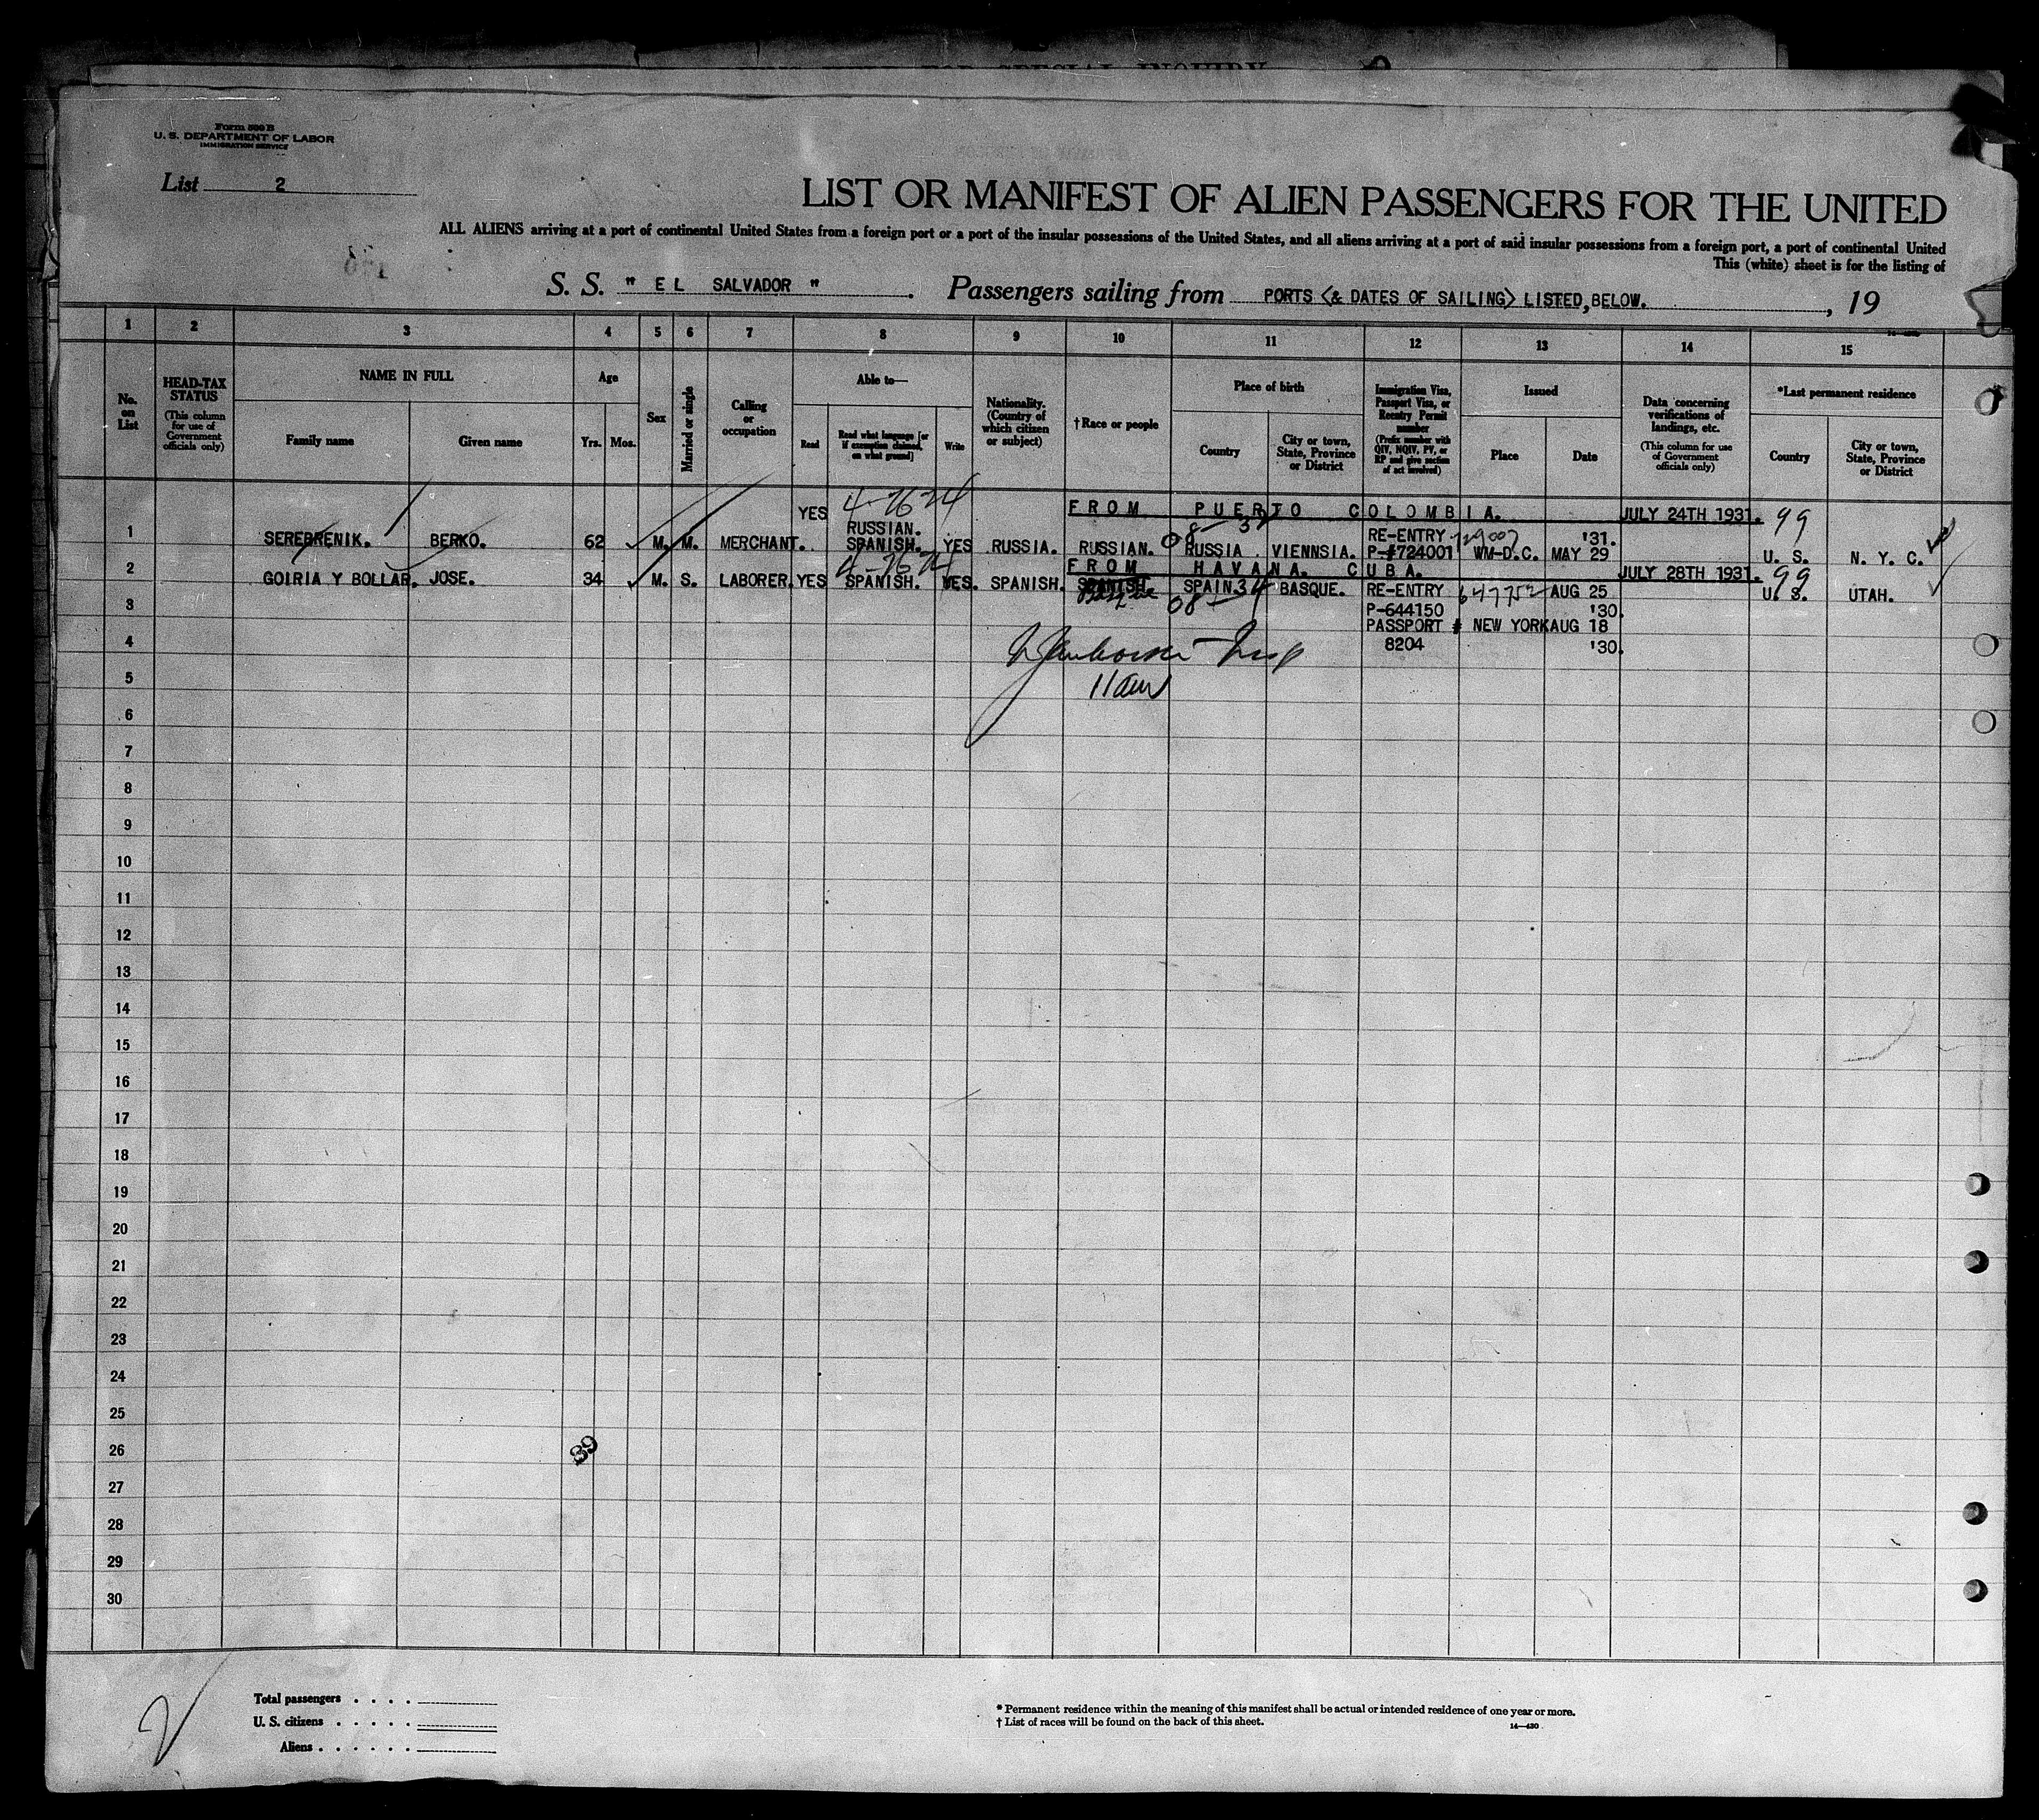 Form 500 B
U. S. DEPARTMENT OF LABOR
IMMIGRATION SERVICE
List 2
LIST OR MANIFEST OF ALIEN PASSENGERS FOR THE UNITED
ALL ALIENS arriving at a port of continental United States from a foreign port or a port of the insular possessions of the United States, and all aliens arriving at a port of said insular possessions from a foreign port, a port of continental United
This (white) sheet is for the listing of
S. S. " EL SALVADOR " . Passengers sailing from PORTS (& DATES OF SAILING) LISTED, BELOW. , 19
1 2 3 4 5 6 7 8 9 10 11 12 13 14 15
No. on List
HEAD-TAX STATUS
(This column for use of Government officials only)
NAME IN FULL
Family name
Given name
Age
Yrs. Mos.
Sex
Married or single
Calling or occupation
Able to—
Read
Read what language [or if exemption claimed, on what ground]
Write
Nationality. (Country of which citizen or subject)
†Race or people
Place of birth
Country
City or town, State, Province or District
Immigration Visa, Passport Visa, or Reentry Permit number
(Prefix number with QIV, NQIV, PV, or RP and give section of act involved)
Issued
Place
Date
Data concerning verifications of landings, etc.
(This column for use of Government officials only)
*Last permanent residence
Country
City or town, State, Province or District
FROM PUERTO COLOMBIA. JULY 24TH 1931. 99
1 SEREBRENIK. BERKO. 62 M. M. MERCHANT. YES RUSSIAN. SPANISH. YES RUSSIA. RUSSIAN. RUSSIA. VIENNSIA. RE-ENTRY P-#724001 WM-D.C. MAY 29 '31. U. S. N. Y. C.
FROM HAVANA. CUBA. JULY 28TH 1931. 99
2 GOIRIA Y BOLLAR. JOSE. 34 M. S. LABORER. YES SPANISH. YES. SPANISH. SPANISH Basque SPAIN BASQUE. RE-ENTRY 647752 AUG 25 U. S. UTAH.
3 P-644150 '30.
PASSPORT # NEW YORK AUG 18
4 8204 '30.
11am
5
6
7
8
9
10
11
12
13
14
15
16
17
18
19
20
21
22
23
24
25
26
27
28
29
30
39
Total passengers . . . .
U. S. citizens . . . . .
Aliens . . . . . .
* Permanent residence within the meaning of this manifest shall be actual or intended residence of one year or more.
† List of races will be found on the back of this sheet.
14—430